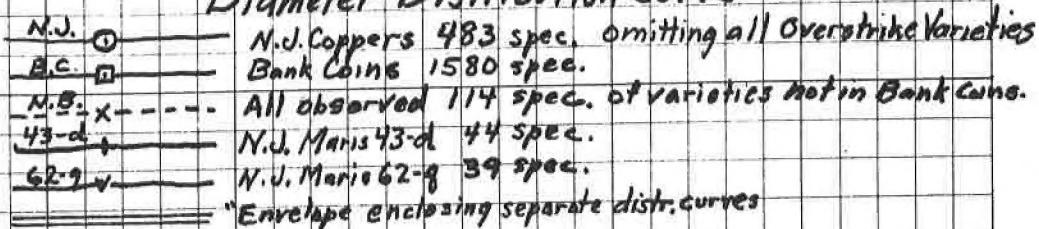 Diameter Distribution Curve
N.J. N.J. Coppers 483 spec. omitting all Overstrike Varieties
B.C. Bank Coins 1580 spec.
N.B. X All observed 114 spec. of varieties not in Bank Coins.
43-d N.J. Maris 43-d 44 spec.
62-q N.J. Maris 62-q 39 spec.
"Envelope enclosing separate distr. curves